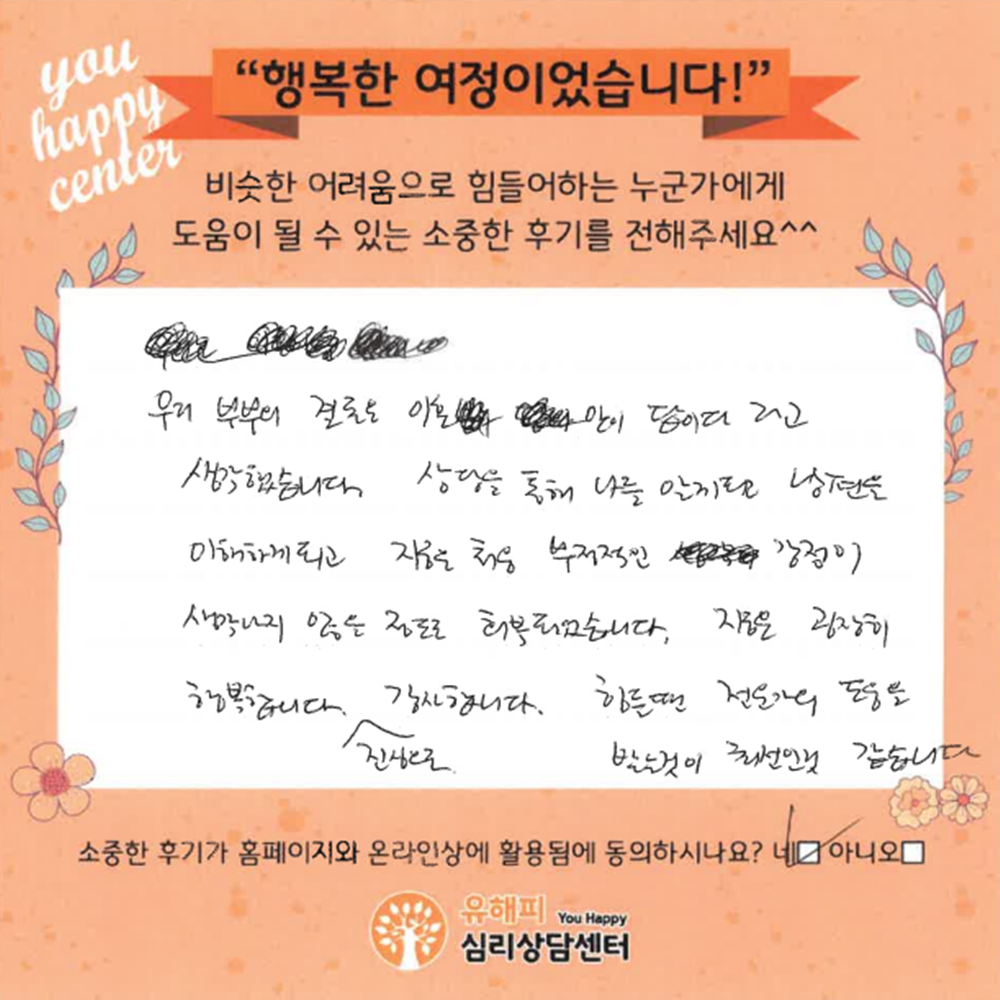 you
happy
center
“행복한 여정이었습니다!”
비슷한 어려움으로 힘들어하는 누군가에게
도움이 될 수 있는 소중한 후기를 전해주세요^^
우리 부부의 결론은 이혼 만이 답이다 라고
생각했었습니다. 상담을 통해 나를 알게되고 남편을
이해하게 되고 지금은 처음 부정적인 감정이
생각나지 않을 정도로 회복되었습니다. 지금은 굉장히
행복합니다. 감사합니다. 힘들땐 전문가의 도움을
진심으로. 받는것이 최선인것 같습니다
소중한 후기가 홈페이지와 온라인상에 활용됨에 동의하시나요? 네 아니오
유해피 You Happy
심리상담센터